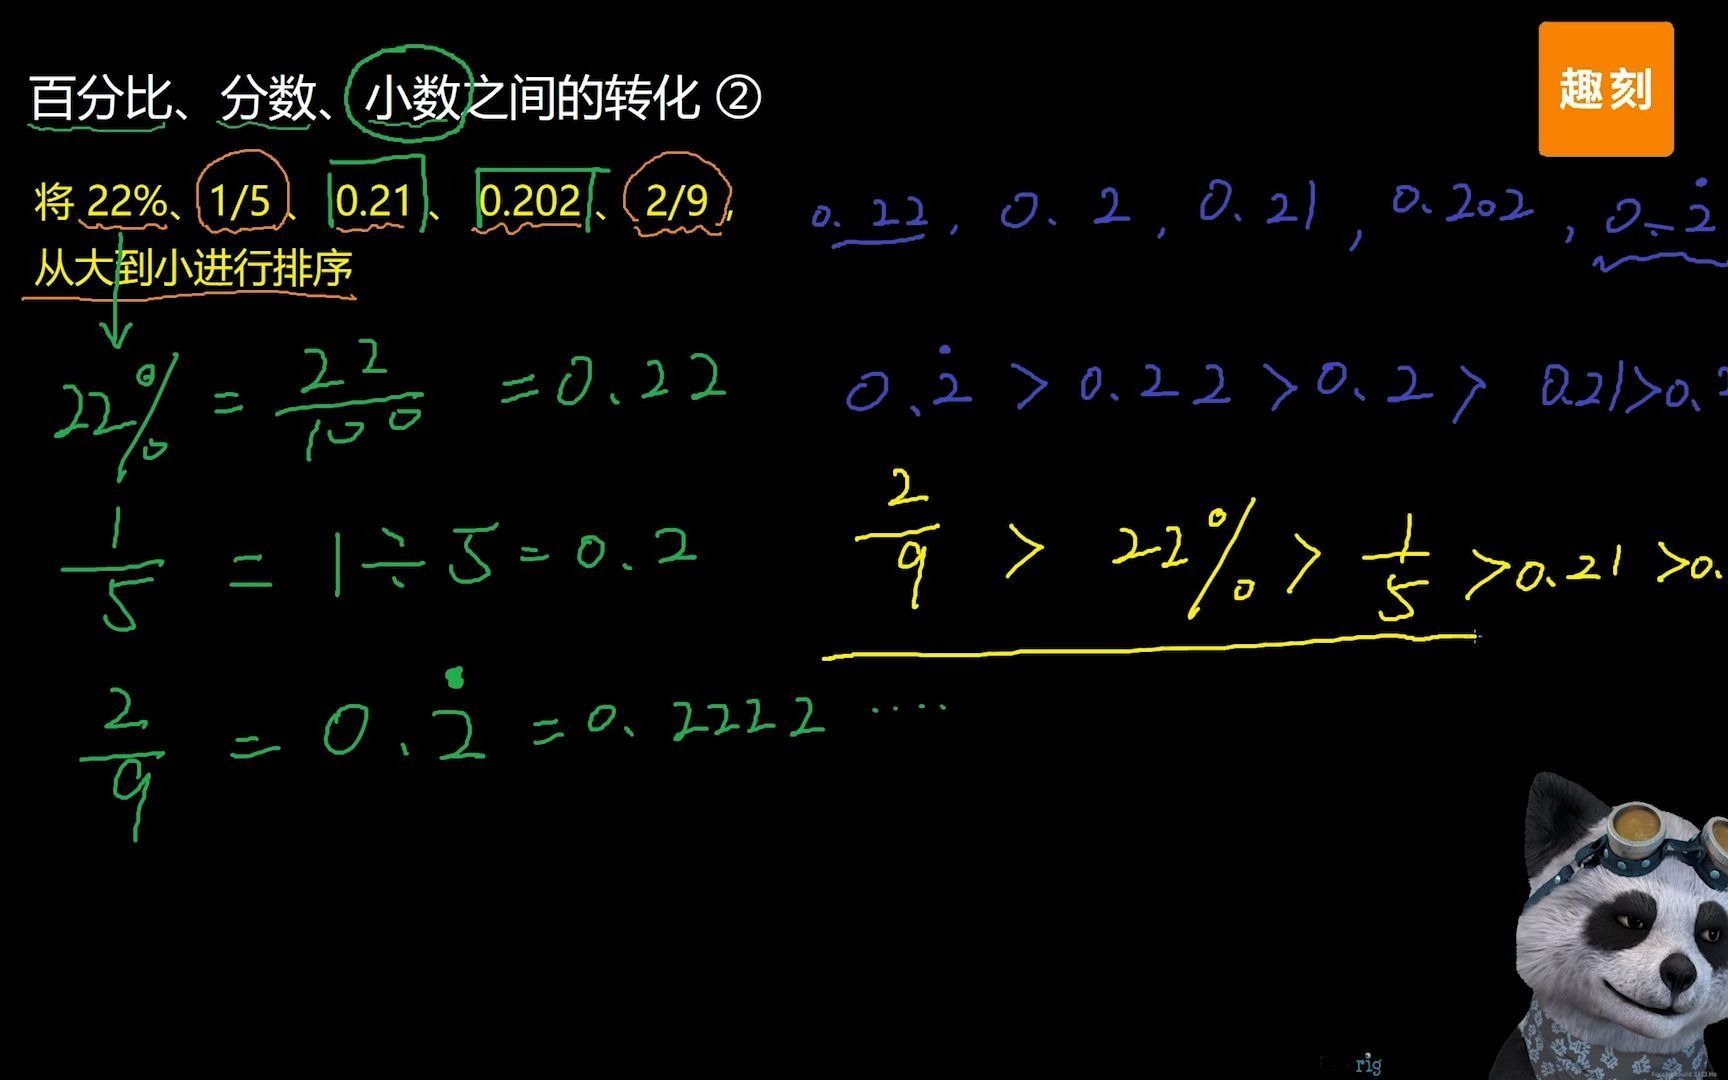 百分比、分数、小数之间的转化 ②
趣刻
将 22%、1/5、0.21、0.202、2/9,
从大到小进行排序
0.22, 0.2, 0.21, 0.202, 0.2̇
22% = 22/100 = 0.22
0.2̇ > 0.22 > 0.2 > 0.21 > 0.
1/5 = 1÷5 = 0.2
2/9 > 22% > 1/5 > 0.21 > 0.
2/9 = 0.2̇ = 0.2222 ····
rig